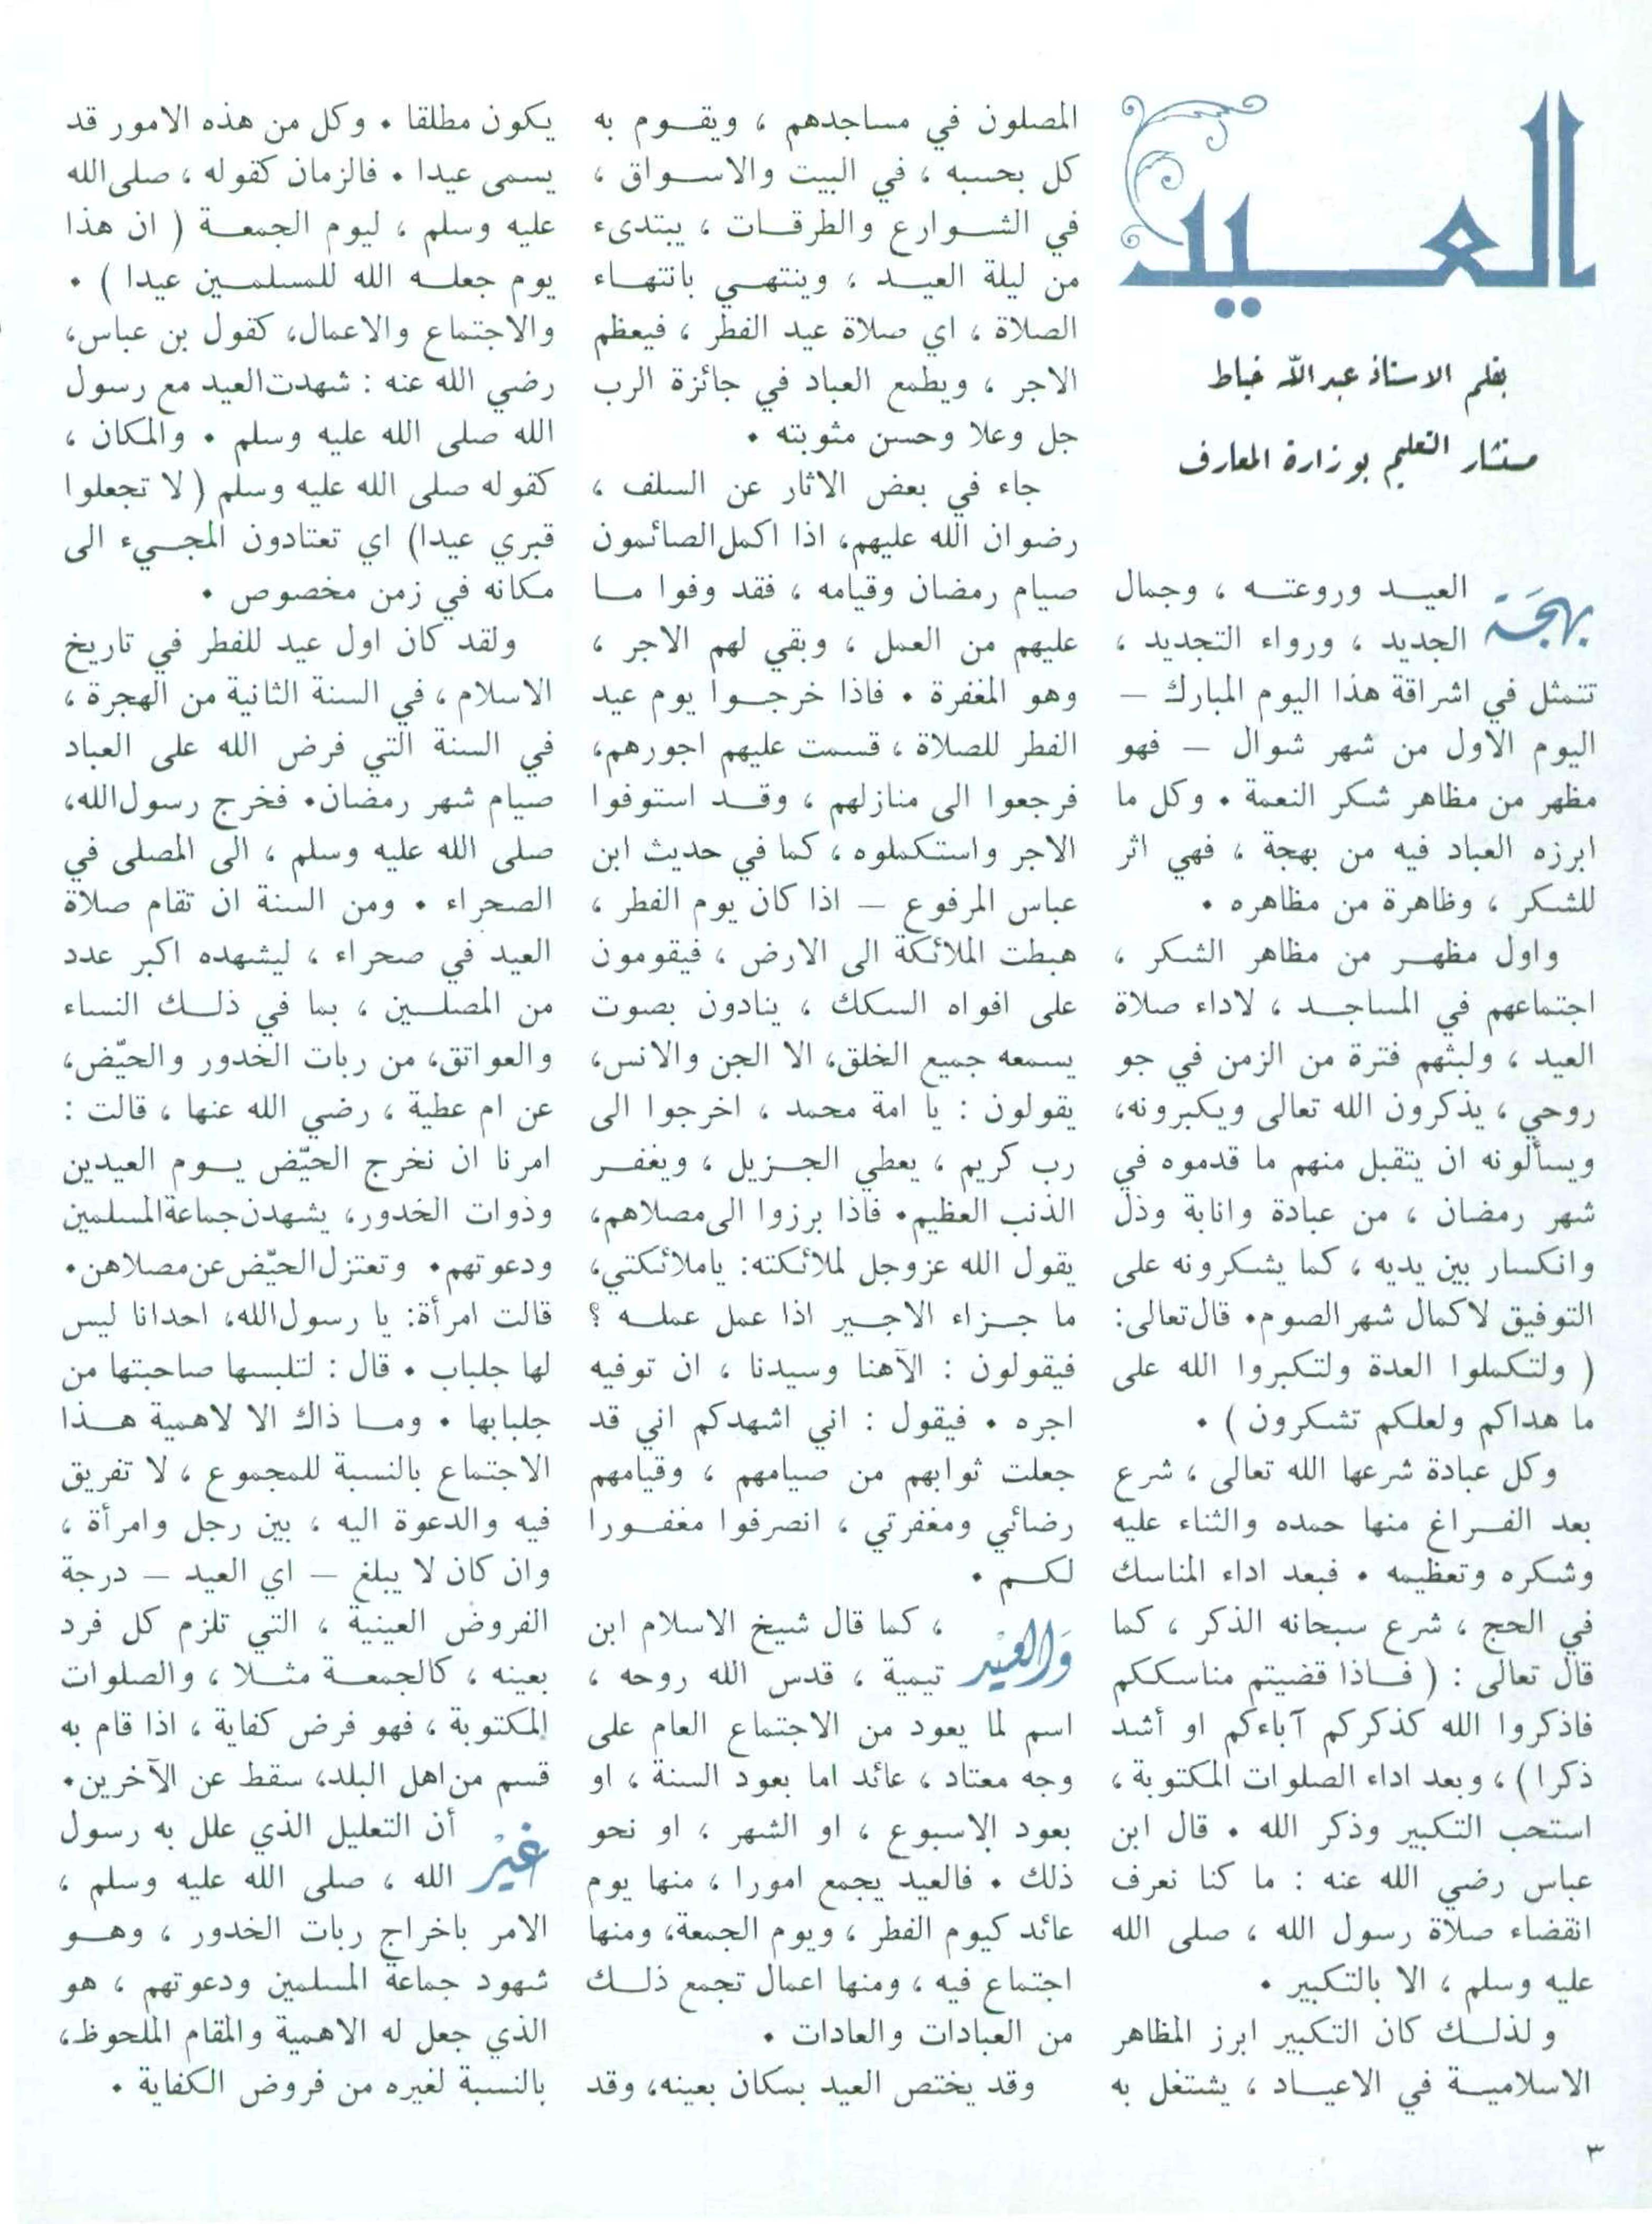 العيد
بقلم الاستاذ عبد الله خياط
مستشار التعليم بوزارة المعارف
بهجة العيد وروعته ، وجمال
الجديد ، ورواء التجديد ،
تتمثل في اشراقة هذا اليوم المبارك —
اليوم الاول من شهر شوال — فهو
مظهر من مظاهر شكر النعمة . وكل ما
ابرزه العباد فيه من بهجة ، فهي اثر
للشكر ، وظاهرة من مظاهره .
واول مظهر من مظاهر الشكر ،
اجتماعهم في المساجد ، لاداء صلاة
العيد ، ولبثهم فترة من الزمن في جو
روحي ، يذكرون الله تعالى ويكبرونه،
ويسألونه ان يتقبل منهم ما قدموه في
شهر رمضان ، من عبادة وانابة وذل
وانكسار بين يديه ، كما يشكرونه على
التوفيق لاكمال شهر الصوم. قال تعالى:
( ولتكملوا العدة ولتكبروا الله على
ما هداكم ولعلكم تشكرون ) .
وكل عبادة شرعها الله تعالى ، شرع
بعد الفراغ منها حمده والثناء عليه
وشكره وتعظيمه . فبعد اداء المناسك
في الحج ، شرع سبحانه الذكر ، كما
قال تعالى : ( فاذا قضيتم مناسككم
فاذكروا الله كذكركم آباءكم او أشد
ذكرا ) ، وبعد اداء الصلوات المكتوبة ،
استحب التكبير وذكر الله . قال ابن
عباس رضي الله عنه : ما كنا نعرف
انقضاء صلاة رسول الله ، صلى الله
عليه وسلم ، الا بالتكبير .
ولذلك كان التكبير ابرز المظاهر
الاسلامية في الاعياد ، يشتغل به
المصلون في مساجدهم ، ويقوم به
كل بحسبه ، في البيت والاسواق ،
في الشوارع والطرقات ، يبتدىء
من ليلة العيد ، وينتهي بانتهاء
الصلاة ، اي صلاة عيد الفطر ، فيعظم
الاجر ، ويطمع العباد في جائزة الرب
جل وعلا وحسن مثوبته .
جاء في بعض الاثار عن السلف ،
رضوان الله عليهم، اذا اكمل الصائمون
صيام رمضان وقيامه ، فقد وفوا ما
عليهم من العمل ، وبقي لهم الاجر ،
وهو المغفرة . فاذا خرجوا يوم عيد
الفطر للصلاة ، قسمت عليهم اجورهم،
فرجعوا الى منازلهم ، وقد استوفوا
الاجر واستكملوه ، كما في حديث ابن
عباس المرفوع — اذا كان يوم الفطر ،
هبطت الملائكة الى الارض ، فيقومون
على افواه السكك ، ينادون بصوت
يسمعه جميع الخلق، الا الجن والانس،
يقولون : يا امة محمد ، اخرجوا الى
رب كريم ، يعطي الجزيل ، ويغفر
الذنب العظيم. فاذا برزوا الى مصلاهم،
يقول الله عزوجل لملائكته: ياملائكتي،
ما جزاء الاجير اذا عمل عمله ؟
فيقولون : الآهنا وسيدنا ، ان توفيه
اجره . فيقول : اني اشهدكم اني قد
جعلت ثوابهم من صيامهم ، وقيامهم
رضائي ومغفرتي ، انصرفوا مغفورا
لكم .
والعيد ، كما قال شيخ الاسلام ابن
تيمية ، قدس الله روحه ،
اسم لما يعود من الاجتماع العام على
وجه معتاد ، عائد اما بعود السنة ، او
بعود الاسبوع ، او الشهر ، او نحو
ذلك . فالعيد يجمع امورا ، منها يوم
عائد كيوم الفطر ، ويوم الجمعة، ومنها
اجتماع فيه ، ومنها اعمال تجمع ذلك
من العبادات والعادات .
وقد يختص العيد بمكان بعينه، وقد
يكون مطلقا . وكل من هذه الامور قد
يسمى عيدا . فالزمان كقوله ، صلى الله
عليه وسلم ، ليوم الجمعة ( ان هذا
يوم جعله الله للمسلمين عيدا ) .
والاجتماع والاعمال، كقول بن عباس،
رضي الله عنه : شهدت العيد مع رسول
الله صلى الله عليه وسلم . والمكان ،
كقوله صلى الله عليه وسلم ( لا تجعلوا
قبري عيدا) اي تعتادون المجيء الى
مكانه في زمن مخصوص .
ولقد كان اول عيد للفطر في تاريخ
الاسلام ، في السنة الثانية من الهجرة ،
في السنة التي فرض الله على العباد
صيام شهر رمضان. فخرج رسول الله،
صلى الله عليه وسلم ، الى المصلى في
الصحراء . ومن السنة ان تقام صلاة
العيد في صحراء ، ليشهده اكبر عدد
من المصلين ، بما في ذلك النساء
والعواتق، من ربات الخدور والحيّض،
عن ام عطية ، رضي الله عنها ، قالت :
امرنا ان نخرج الحيّض يوم العيدين
وذوات الخدور، يشهدن جماعة المسلمين
ودعوتهم. وتعتزل الحيّض عن مصلاهن.
قالت امرأة: يا رسول الله، احدانا ليس
لها جلباب . قال : لتلبسها صاحبتها من
جلبابها . وما ذاك الا لاهمية هذا
الاجتماع بالنسبة للمجموع ، لا تفريق
فيه والدعوة اليه ، بين رجل وامرأة ،
وان كان لا يبلغ — اي العيد — درجة
الفروض العينية ، التي تلزم كل فرد
بعينه ، كالجمعة مثلا ، والصلوات
المكتوبة ، فهو فرض كفاية ، اذا قام به
قسم من اهل البلد، سقط عن الآخرين.
غير أن التعليل الذي علل به رسول
الله ، صلى الله عليه وسلم ،
الامر باخراج ربات الخدور ، وهو
شهود جماعة المسلمين ودعوتهم ، هو
الذي جعل له الاهمية والمقام الملحوظ،
بالنسبة لغيره من فروض الكفاية .
٣